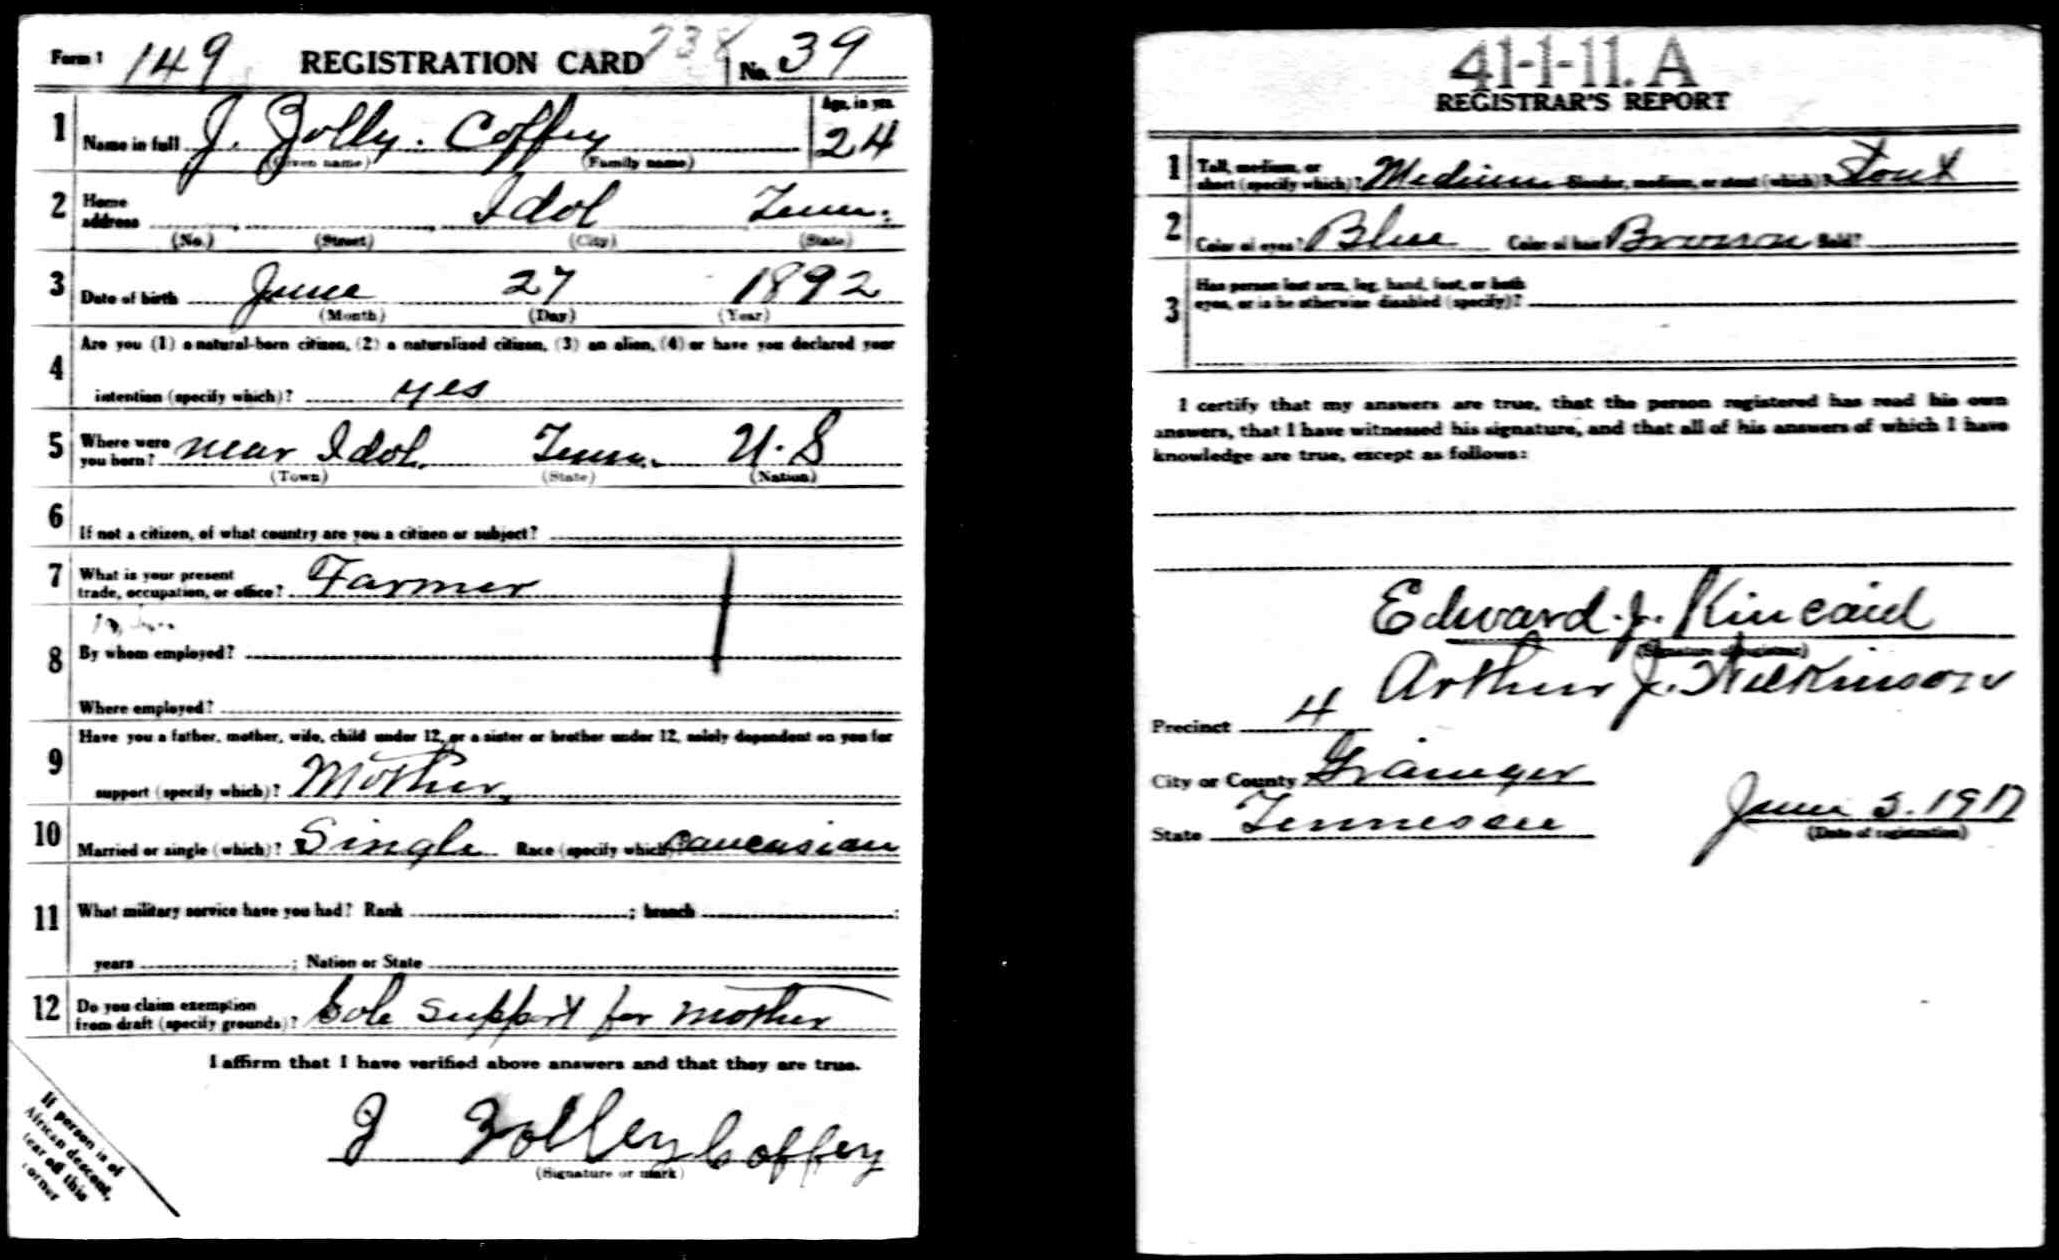 Form 1 149 REGISTRATION CARD 738 No. 39
1 Name in full J. Zolly. Coffey Age, in yrs. 24
(Given name) (Family name)
2 Home address Idol Tenn.
(No.) (Street) (City) (State)
3 Date of birth June 27 1892
(Month) (Day) (Year)
4 Are you (1) a natural-born citizen, (2) a naturalized citizen, (3) an alien, (4) or have you declared your
intention (specify which)? yes
5 Where were you born? near Idol. Tenn. U.S
(Town) (State) (Nation)
6 If not a citizen, of what country are you a citizen or subject?
7 What is your present
trade, occupation, or office? Farmer
8 By whom employed?
Where employed?
9 Have you a father, mother, wife, child under 12, or a sister or brother under 12, solely dependent on you for
support (specify which)? Mother.
10 Married or single (which)? Single Race (specify which)? Caucasian
11 What military service have you had? Rank ; branch ;
years ; Nation or State
12 Do you claim exemption
from draft (specify grounds)? Sole support for mother
I affirm that I have verified above answers and that they are true.
J Zolley Coffey
(Signature or mark)
If person is of
African descent,
tear off this
corner
41-1-11. A
REGISTRAR'S REPORT
1 Tall, medium, or
short (specify which)? Medium Slender, medium, or stout (which)? Stout
2 Color of eyes? Blue Color of hair? Brown Bald?
3 Has person lost arm, leg, hand, foot, or both
eyes, or is he otherwise disabled (specify)?
I certify that my answers are true, that the person registered has read his own
answers, that I have witnessed his signature, and that all of his answers of which I have
knowledge are true, except as follows:
Edward. J. Kincaid
(Signature of registrar)
Arthur J. Wilkinson
Precinct 4
City or County Grainger
State Tennessee June 5. 1917
(Date of registration)